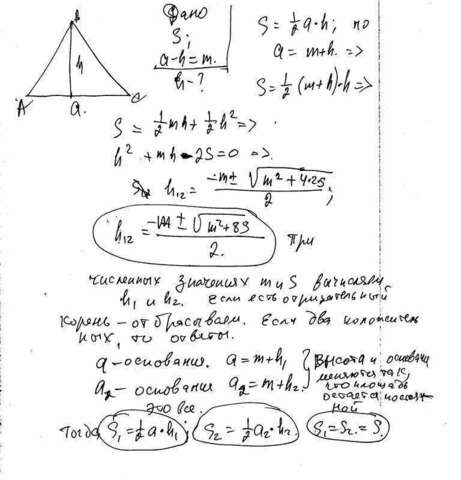 Дано
S;
a-h=m.
h-?
S=½a·h; но
a=m+h. =>
S=½(m+h)·h=>
B
h
A a. C
S=½mh+½h²=>
h²+mh-2S=0 =>.
h₁₂=(-m±√(m²+4·2S))/2;
h₁₂=(-m±√(m²+8S))/2. При
численных значениях m и S вычисляем
h₁ и h₂. Если есть отрицательный
корень-отбрасываем. Если два положитель
ных, то ответы.
a-основания. a=m+h₁
a₂-основания a₂=m+h₂.
Высота и основани
меняются так,
что площадь
остается постоян
ной
Это все.
Тогда S₁=½a·h₁; S₂=½a₂·h₂. S₁=S₂.=S.